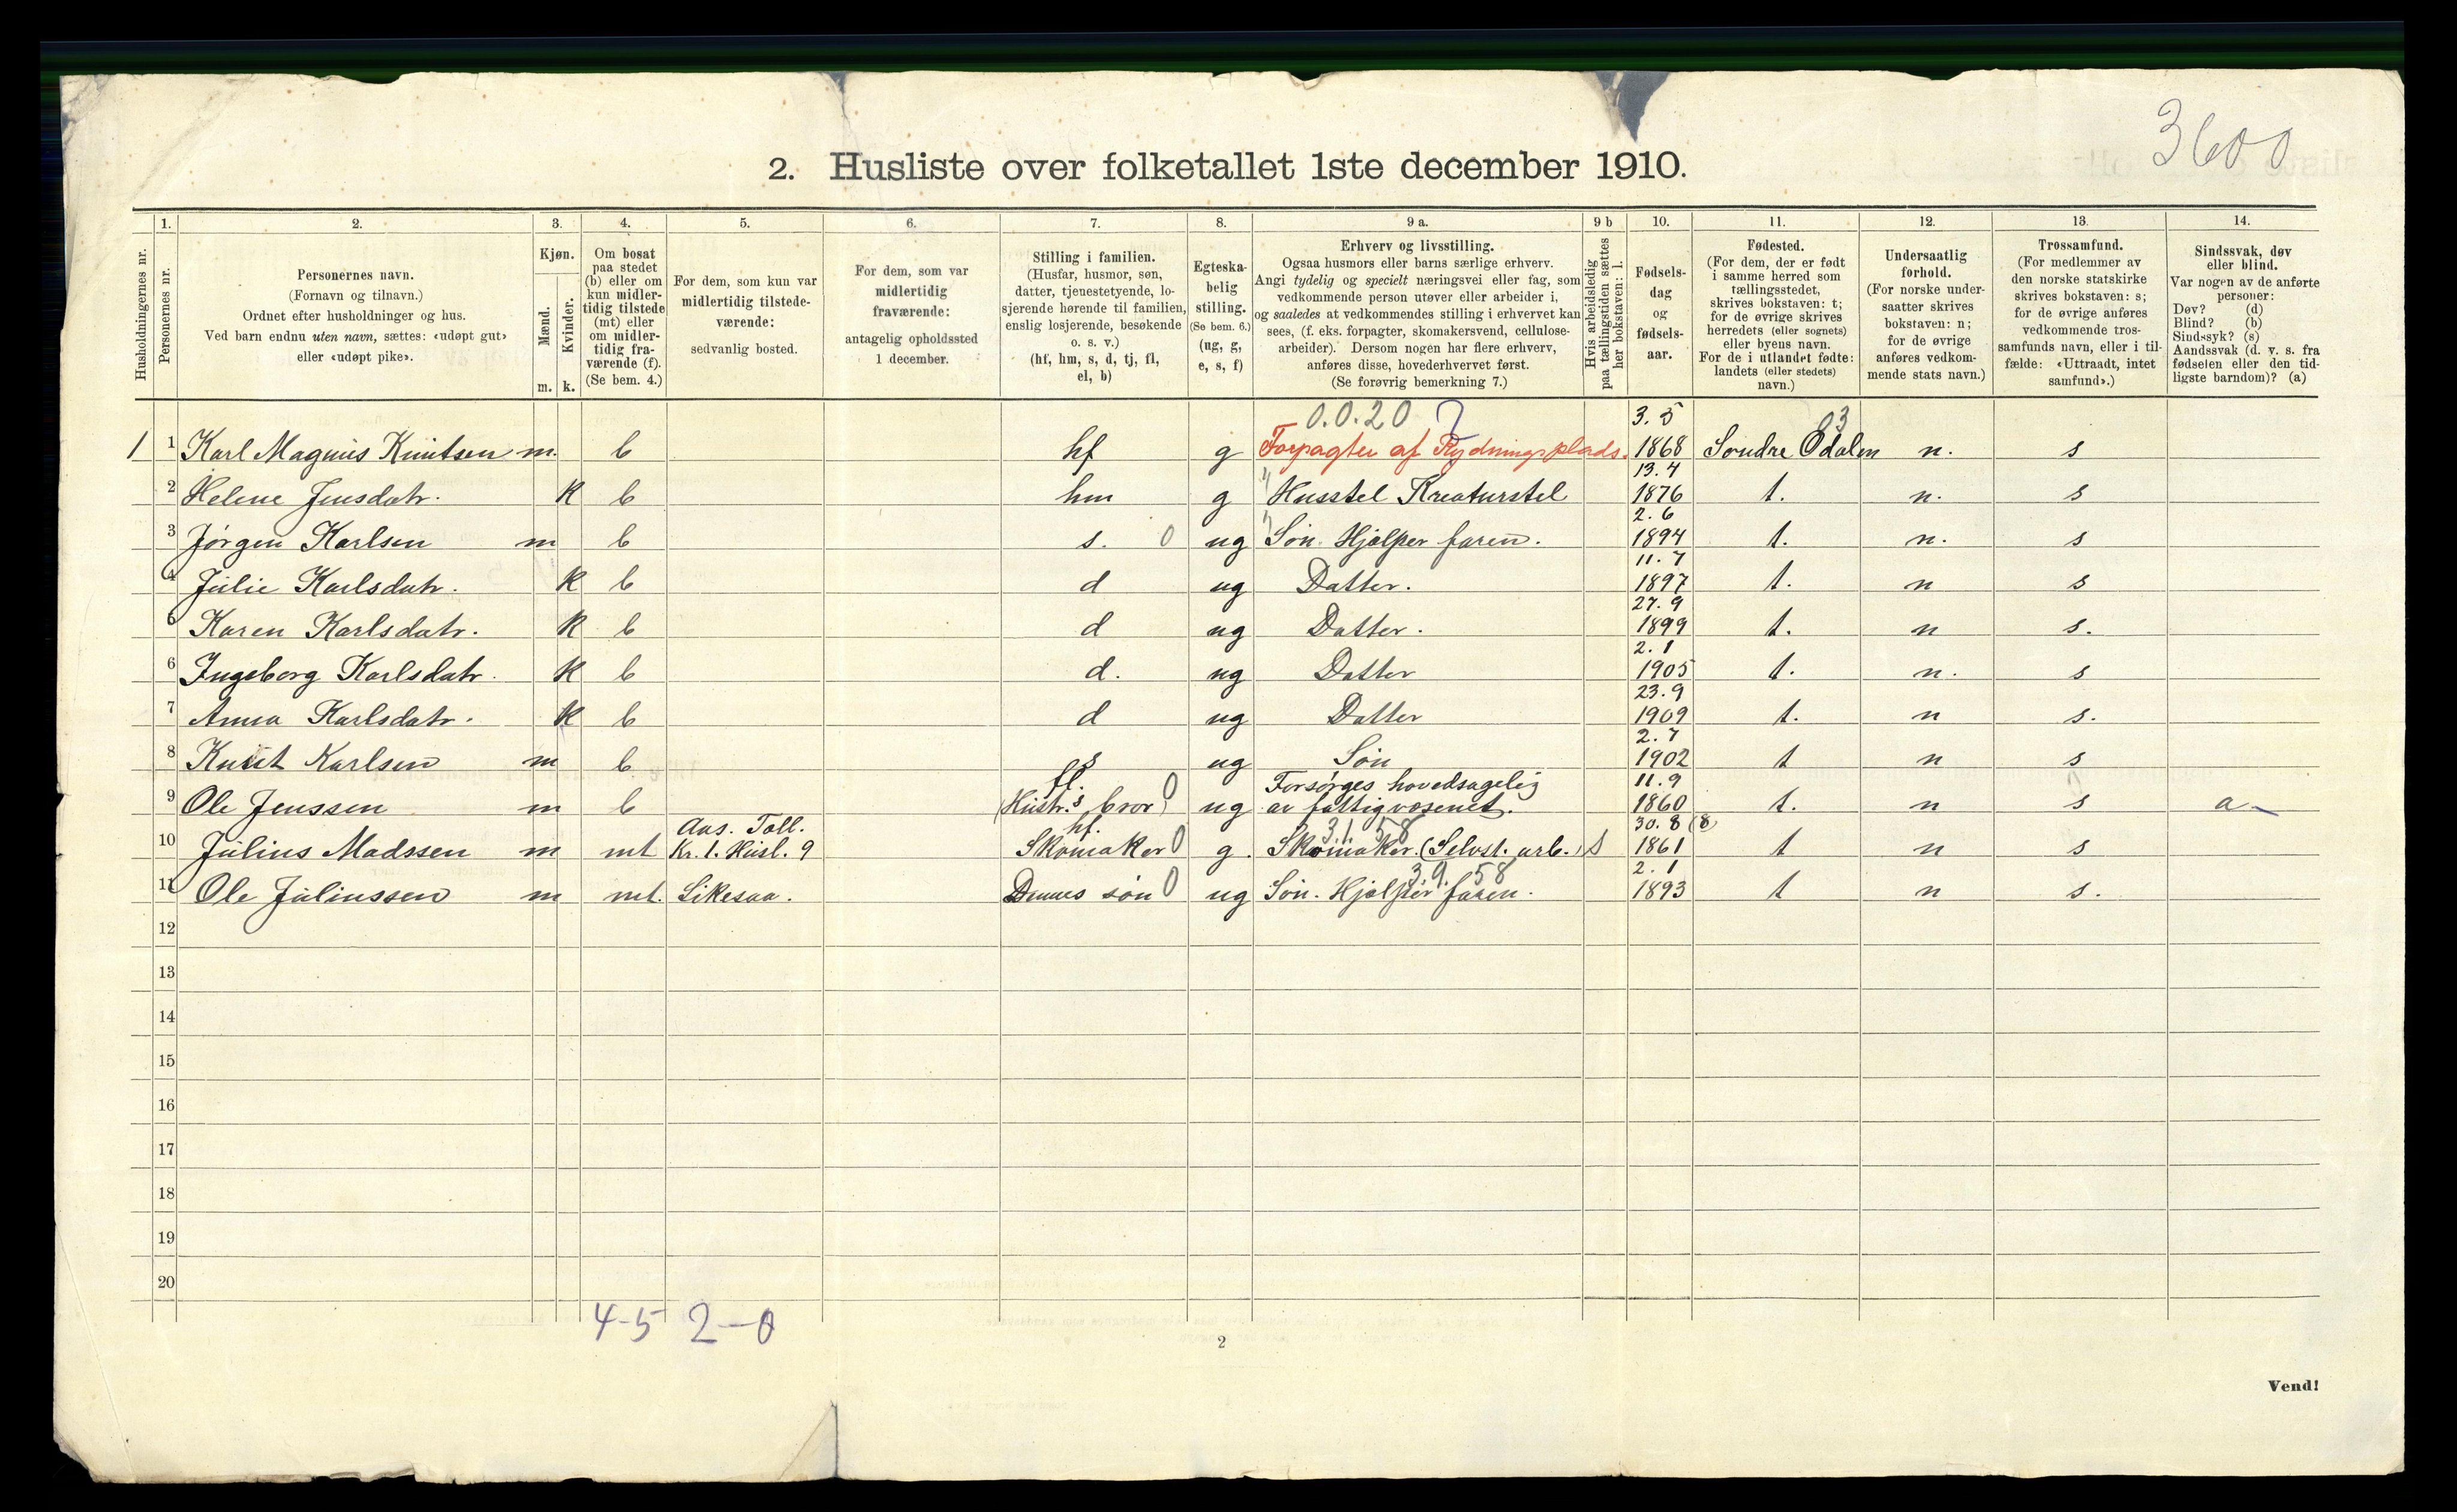 3600
2. Husliste over folketallet 1ste december 1910.
Husholdningernes nr.
1.
Personernes nr.
2.
Personernes navn.
(Fornavn og tilnavn.)
Ordnet efter husholdninger og hus.
Ved barn endnu uten navn, sættes: «udøpt gut»
eller «udøpt pike».
3.
Kjøn.
Mænd.
Kvinder.
m. k.
4.
Om bosat
paa stedet
(b) eller om
kun midler-
tidig tilstede
(mt) eller
om midler-
tidig fra-
værende (f).
(Se bem. 4.)
5.
For dem, som kun var
midlertidig tilstede-
værende:
sedvanlig bosted.
6.
For dem, som var
midlertidig
fraværende:
antagelig opholdssted
1 december.
7.
Stilling i familien.
(Husfar, husmor, søn,
datter, tjenestetyende, lo-
sjerende hørende til familien,
enslig losjerende, besøkende
o. s. v.)
(hf, hm, s, d, tj, fl,
el, b)
8.
Egteska-
belig
stilling.
(Se bem. 6.)
(ug, g,
e, s, f)
9 a.
Erhverv og livsstilling.
Ogsaa husmors eller barns særlige erhverv.
Angi tydelig og specielt næringsvei eller fag, som
vedkommende person utøver eller arbeider i,
og saaledes at vedkommendes stilling i erhvervet kan
sees, (f. eks. forpagter, skomakersvend, cellulose-
arbeider). Dersom nogen har flere erhverv,
anføres disse, hovederhvervet først.
(Se forøvrig bemerkning 7.)
9 b
Hvis arbeidsledig
paa tællingstiden sættes
her bokstaven: l.
10.
Fødsels-
dag
og
fødsels-
aar.
11.
Fødested.
(For dem, der er født
i samme herred som
tællingsstedet,
skrives bokstaven: t;
for de øvrige skrives
herredets (eller sognets)
eller byens navn.
For de i utlandet fødte:
landets (eller stedets)
navn.)
12.
Undersaatlig
forhold.
(For norske under-
saatter skrives
bokstaven: n;
for de øvrige
anføres vedkom-
mende stats navn.)
13.
Trossamfund.
(For medlemmer av
den norske statskirke
skrives bokstaven: s;
for de øvrige anføres
vedkommende tros-
samfunds navn, eller i til-
fælde: «Uttraadt, intet
samfund».)
14.
Sindssvak, døv
eller blind.
Var nogen av de anførte
personer:
Døv? (d)
Blind? (b)
Sindssyk? (s)
Aandssvak (d. v. s. fra
fødselen eller den tid-
ligste barndom)? (a)
0.0.20 3.5 03
1 1 Karl Magnus Knutsen m. b hf g Forpagter af Rydningsplads. 1868 Søndre Odalen n. s
13.4
2 Helene Jensdatr. k b hm g Husstel Kreaturstel 1876 t. n. s
2.6
3 Jørgen Karlsen m b s. 0 ug Søn. Hjælper faren. 1894 t. n. s
11.7
4 Julie Karlsdatr. k b d ug Datter. 1897 t. n s
27.9
5 Karen Karlsdatr. k b d ug Datter. 1899 t. n s.
2.1
6 Ingeborg Karlsdatr. k b d. ug Datter 1905 t. n. s
23.9
7 Anna Karlsdatr. k b d ug Datter 1909 t. n s.
2.7
8 Knut Karlsen m b s ug Søn 1902 t n s
fl. Forsørges hovedsagelig 11.9
9 Ole Jenssen m b (Hustr.s bror) 0 ug av fattigvæsenet. 1860 t. n s a
Aas. Tæll. hf. 31.58 30.8 (8)
10 Julius Madssen m mt Kr. 1. Husl. 9 Skomaker 0 g. Skomaker. (Selvst. arb.) s 1861 t n s
39.58 2.1
11 Ole Juliussen m mt. Likesaa. Dennes søn 0 ug Søn. Hjælper faren. 1893 t n s.
12
13
14
15
16
17
18
19
20
4-5 2-0
2
Vend!